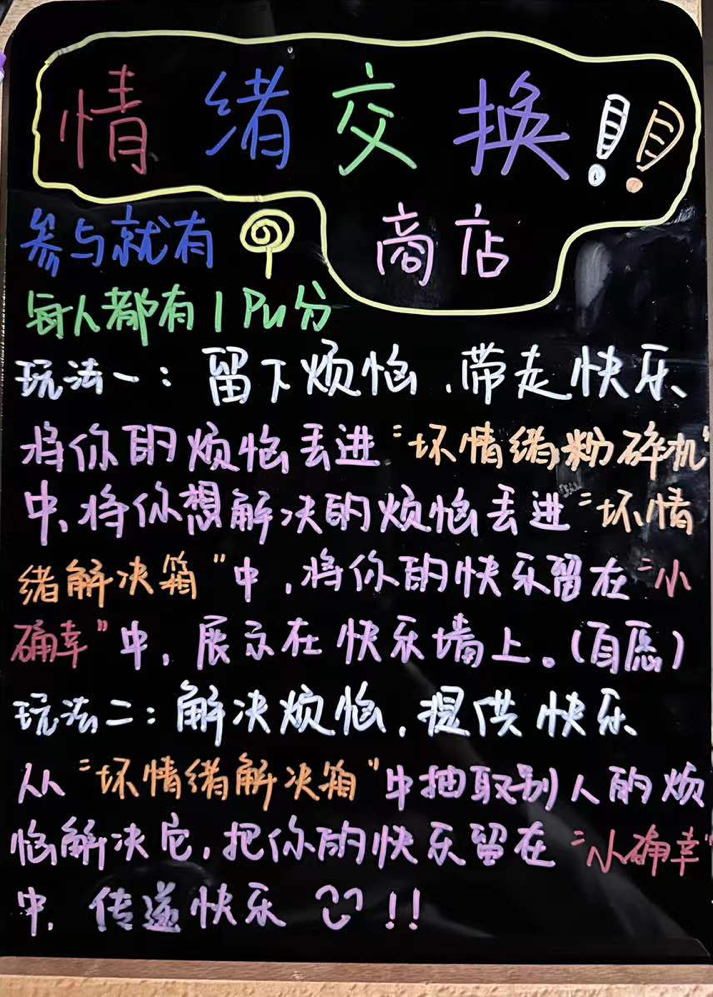 情绪交换!!
商店
参与就有
每人都有1Pu分
玩法一：留下烦恼，带走快乐
将你的烦恼丢进“坏情绪粉碎机”
中，将你想解决的烦恼丢进“坏情
绪解决箱”中，将你的快乐留在“小
确幸”中，展示在快乐墙上。(自愿)
玩法二：解决烦恼，提供快乐
从“坏情绪解决箱”中抽取别人的烦
恼解决它，把你的快乐留在“小确幸”
中，传递快乐!!